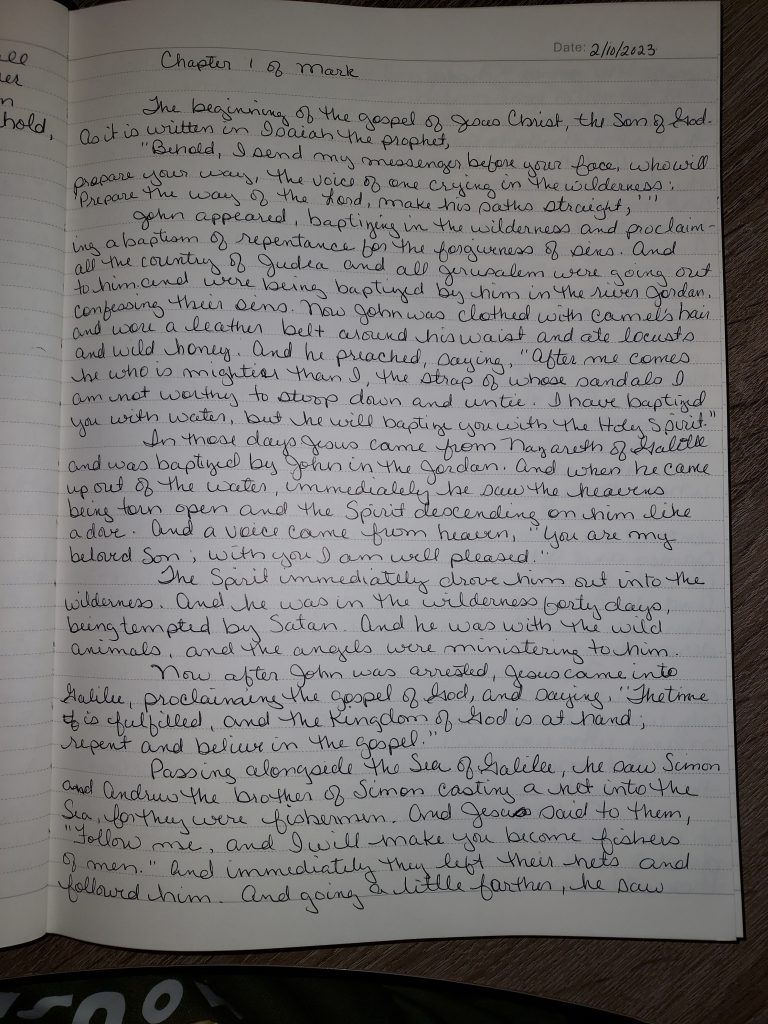 ee
er
n
hold,
Date: 2/10/2023
Chapter 1 of Mark
The beginning of the gospel of Jesus Christ, the Son of God.
As it is written in Isaiah the prophet,
"Behold, I send my messenger before your face, who will
prepare your way, the voice of one crying in the wilderness:
'Prepare the way of the Lord, make his paths straight,'"
John appeared, baptizing in the wilderness and proclaim-
ing a baptism of repentance for the forgiveness of sins. And
all the country of Judea and all Jerusalem were going out
to him and were being baptized by him in the river Jordan,
confessing their sins. Now John was clothed with camel's hair
and wore a leather belt around his waist and ate locusts
and wild honey. And he preached, saying, "After me comes
he who is mightier than I, the strap of whose sandals I
am not worthy to stoop down and untie. I have baptized
you with water, but he will baptize you with the Holy Spirit."
In those days Jesus came from Nazareth of Galilee
and was baptized by John in the Jordan. And when he came
up out of the water, immediately he saw the heavens
being torn open and the Spirit descending on him like
a dove. And a voice came from heaven, "You are my
beloved Son; with you I am well pleased."
The Spirit immediately drove him out into the
wilderness. And he was in the wilderness forty days,
being tempted by Satan. And he was with the wild
animals, and the angels were ministering to him.
Now after John was arrested, Jesus came into
Galilee, proclaiming the gospel of God, and saying, "The time
is fulfilled, and the Kingdom of God is at hand;
repent and believe in the gospel."
Passing alongside the Sea of Galilee, he saw Simon
and Andrew the brother of Simon casting a net into the
Sea, for they were fishermen. And Jesus said to them,
"Follow me, and I will make you become fishers
of men." And immediately they left their nets and
followed him. And going a little farther, he saw